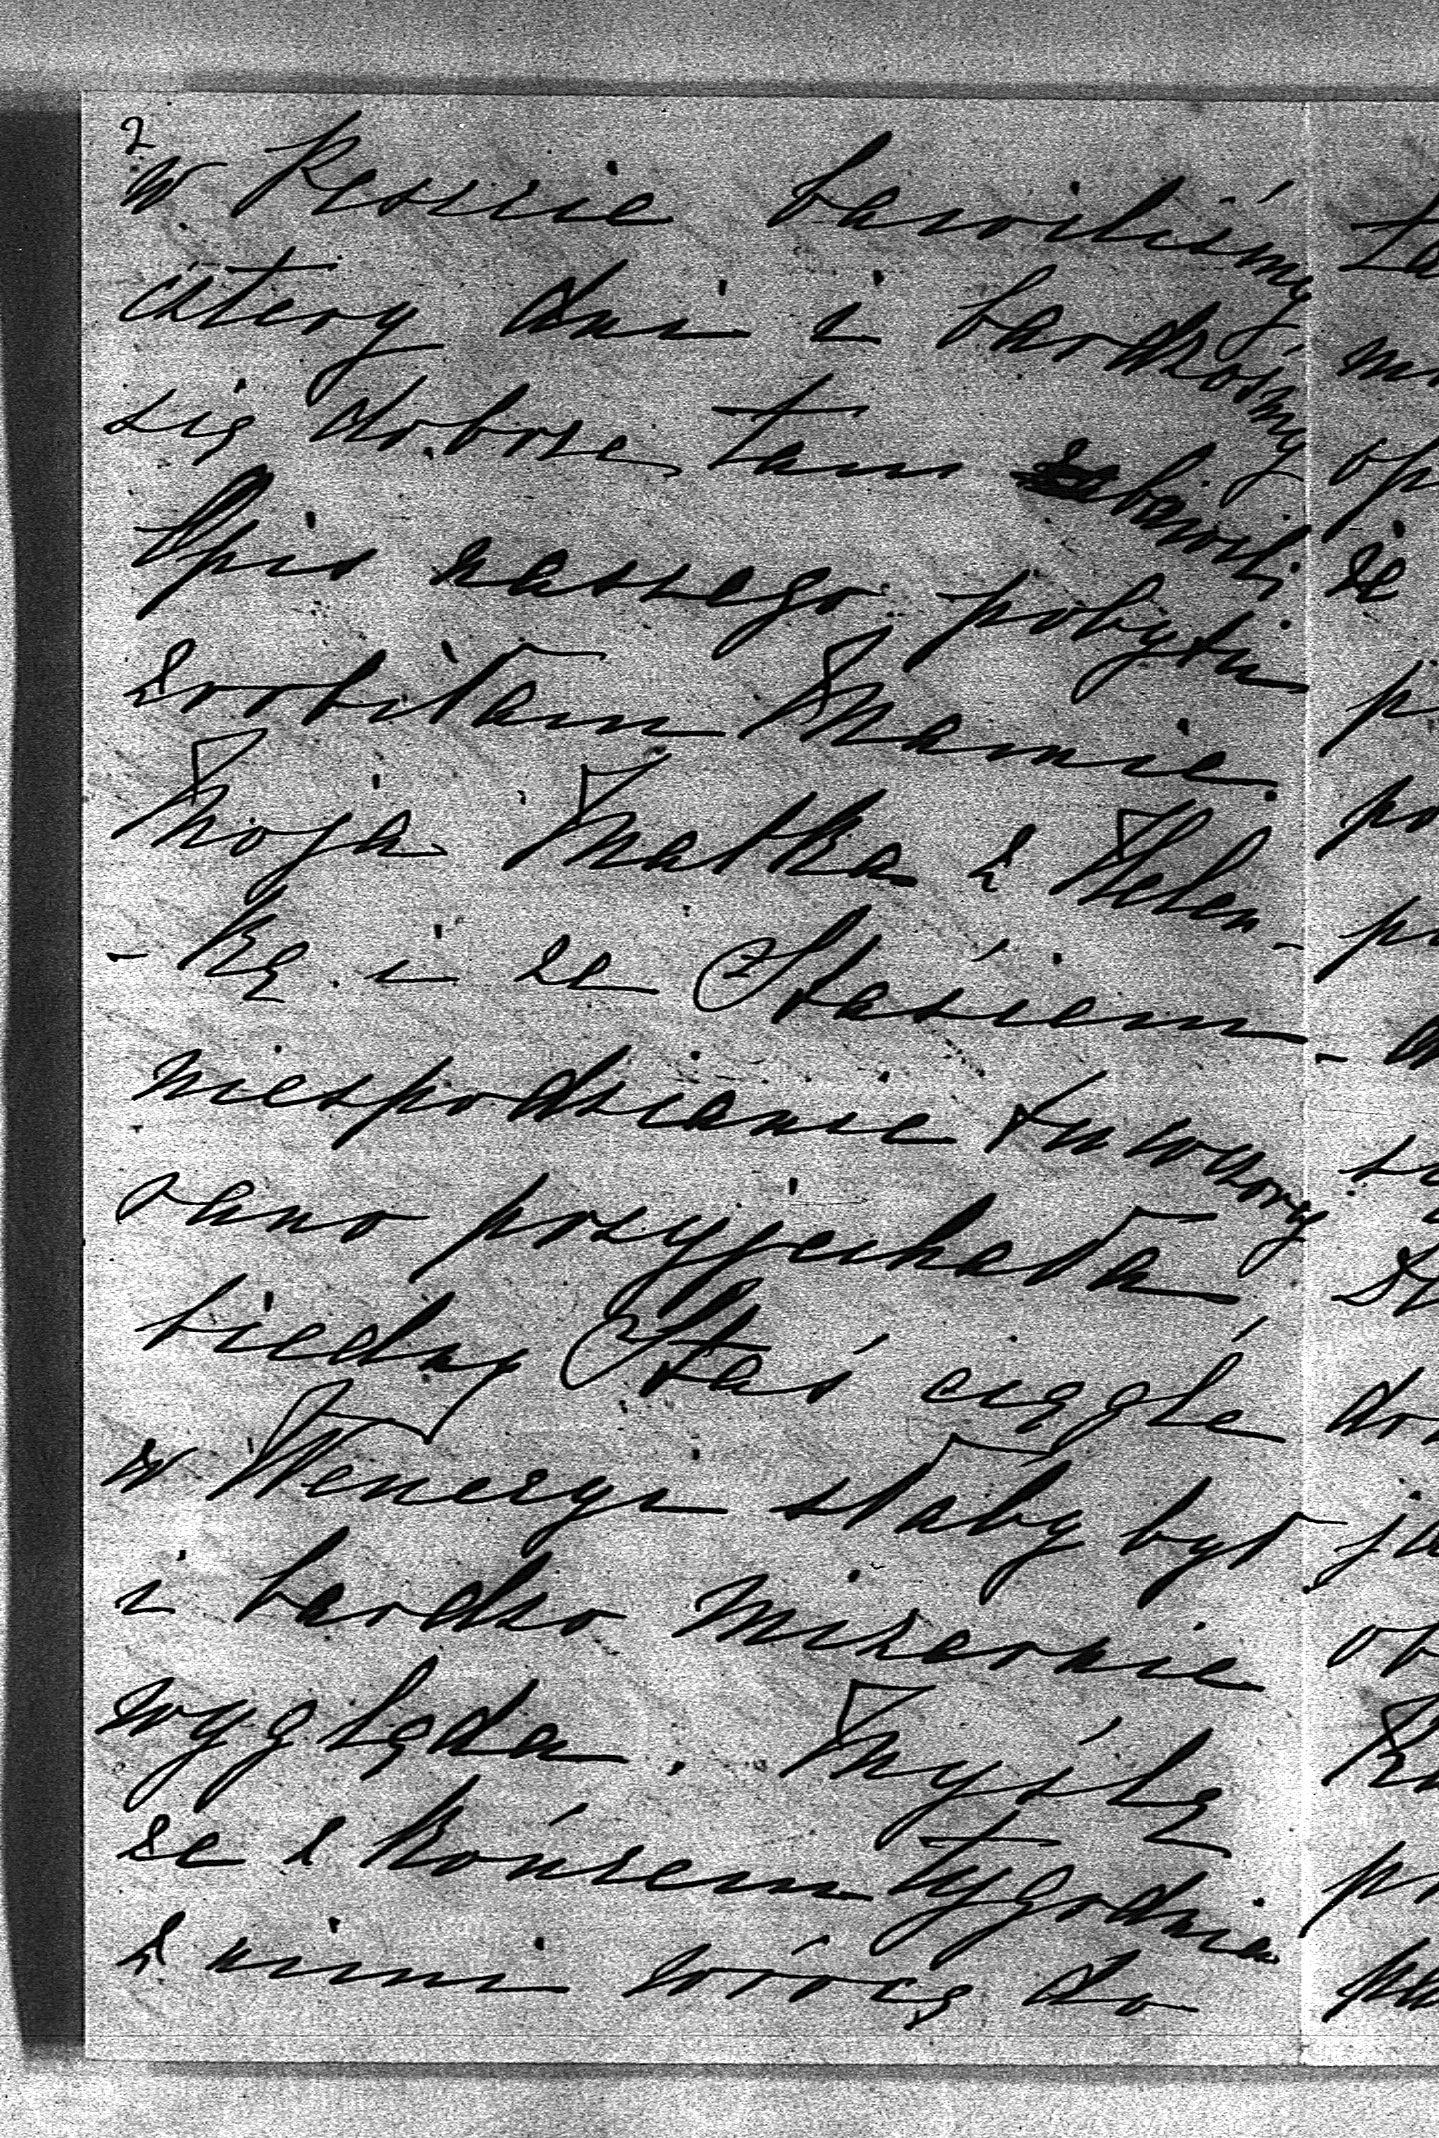 2
w Peszcie bawiliśmy
cztery dni i bardzośmy
się dobrze tam bawili
Opis naszego pobytu
zrobiłam Mamie.
Moja Matka z Helen-
-ką i ze Stasiem
niespodzianie tu wczoraj
rano przyjechała
biedny Staś ciągle
w Wenecyi słaby był
i bardzo mizernie
wygląda. Myślę
że z końcem tygodnia
z nimi wrócę do